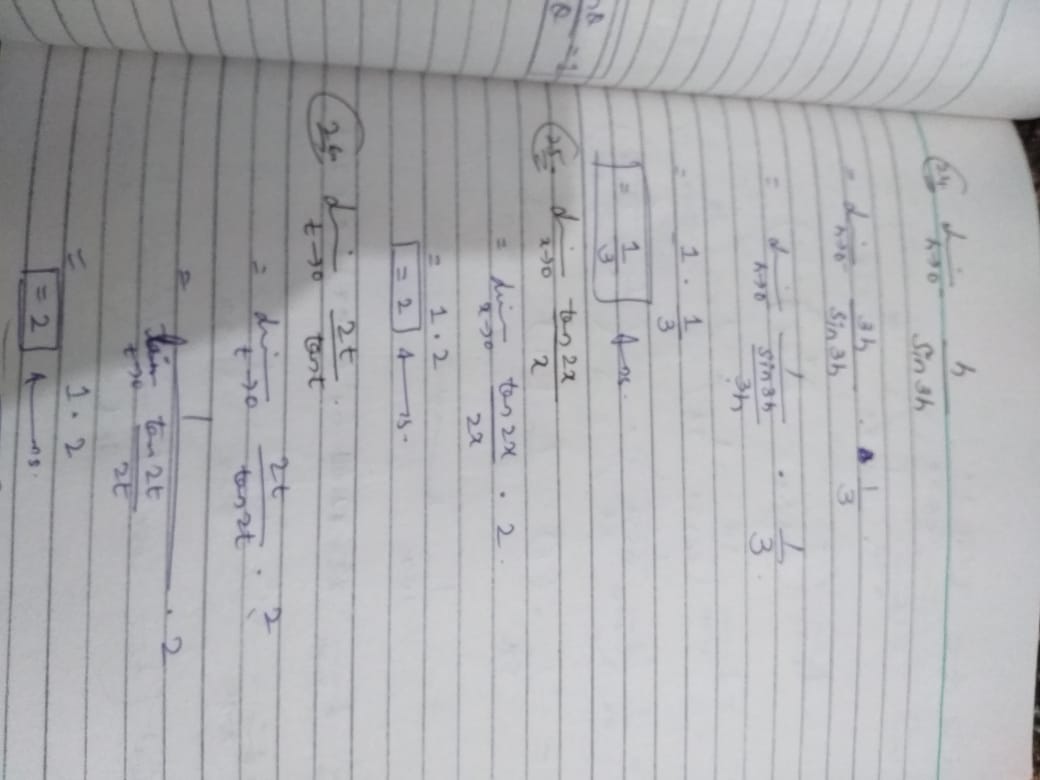 24 lim h→0 h / sin 3h
= lim h→0 3h / sin 3h . 1/3
= lim h→0 1 / (sin 3h / 3h) . 1/3
= 1 . 1/3
= 1/3 Ans.
25 lim x→0 tan 2x / x
= lim x→0 tan 2x / 2x . 2
= 1 . 2
= 2 Ans.
26 lim t→0 2t / tan t.
= lim t→0 2t / tan 2t . 2
= 1 / (lim t→0 tan 2t / 2t) . 2
= 1 . 2
= 2 Ans.